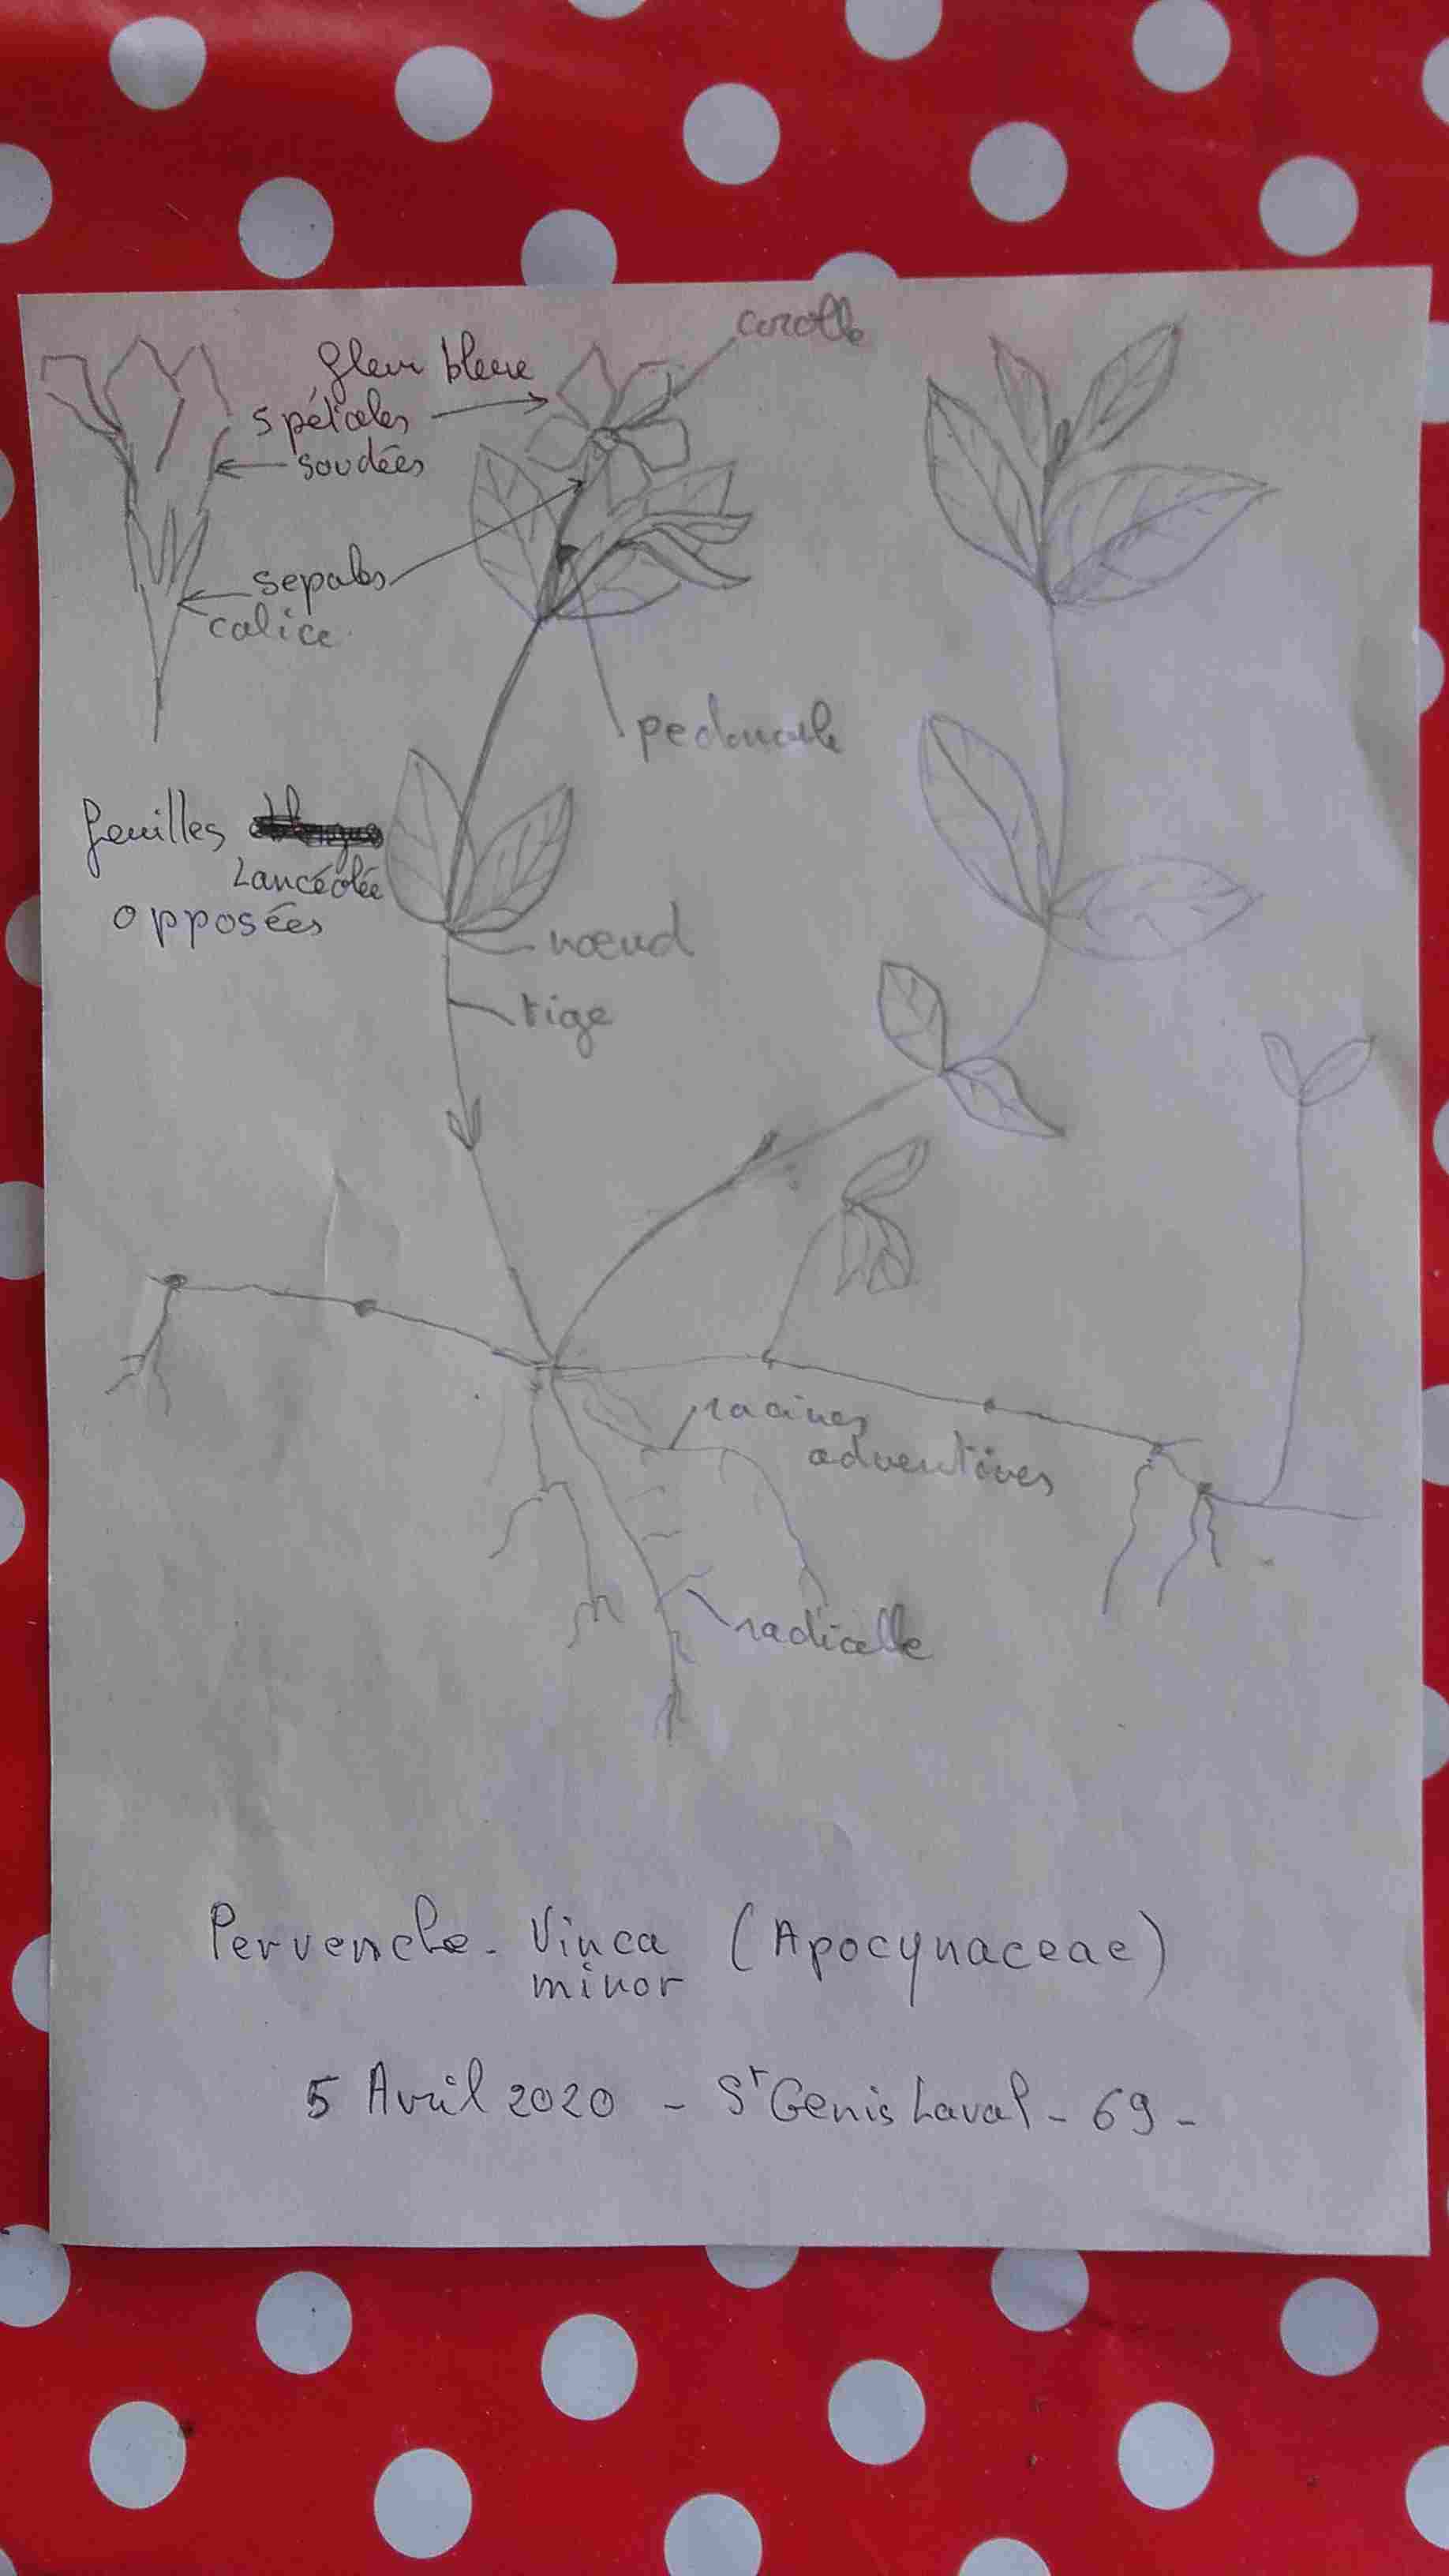 corolle
fleur bleue
5 pétales
soudées
sepales
calice
pedoncule
feuilles
Lancéolée
opposées
nœud
tige
racines
adventives
radicelle
Pervenche - Vinca (Apocynaceae)
minor
5 Avril 2020 - St Genis Laval - 69 -